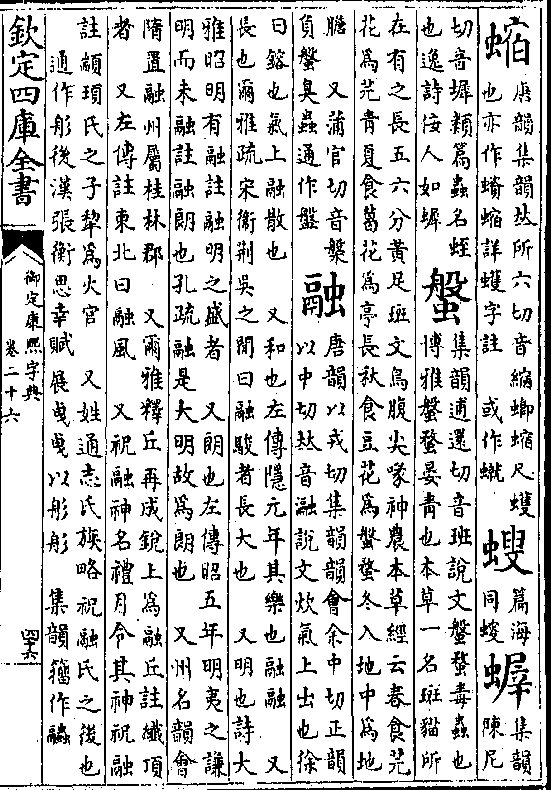 唐韻集韻𠀤所六切音縮蝍尺蠖也亦作蠀詳蠖字註 或作蝛 螋 篇海同螋 集韻陳尼
切音墀類篇蟲名蛭也逸詩佞人如 螌 集韻逋還切音班說文螌蝥毒蟲也博雅螌蝥晏靑也本草一名斑猫所
在有之長五六分黃足斑文烏腹尖喙神農本草經云春食芫
花爲芫青夏食葛花爲亭長秋食豆花爲螌蝥冬入地中爲地
膽 又蒲官切音槃負螌臭蟲通作盤 融 唐韻以戎切集韻韻會余中切正韻以中切𠀤音瀜說文炊氣上出也徐
曰鎔也氣上融散也 又和也左傳隱元年其樂也融融 又
長也爾雅疏宋衛荆吳之閒曰融駿者長大也 又明也詩大
雅昭明有融註融明之盛者 又朗也左傳昭五年明夷之謙
明而未融註融朗也孔疏融是大明故爲朗也 又州名韻會
隋置融州屬桂林郡 又爾雅釋丘再成銳上爲融丘註纖頂
者 又左傳註東北曰融風 又祝融神名禮月令其神祝融
註顓頊氏之子犂爲火官 又姓通志氏族略祝融氏之後也
通作肜後漢張衡思𤣥賦展曳曳以肜肜 集韻籒作䖝
欽定四庫全書
御定康熙字典
卷二十六
四十六